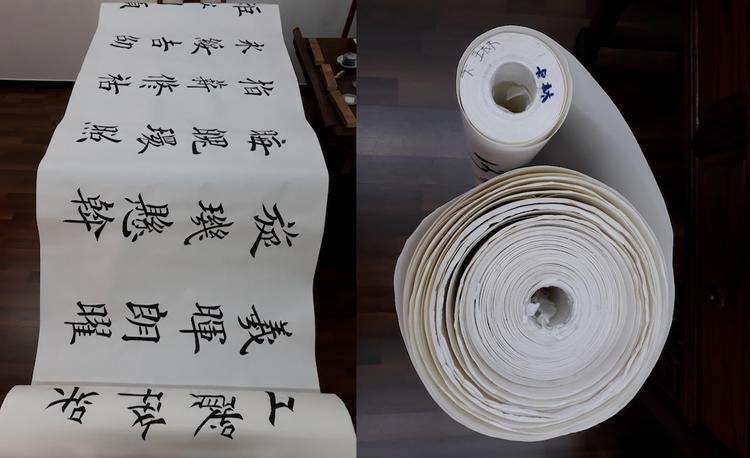 工顰妍笑
羲暉朗曜
旋璣懸斡
晦魄環照
指薪修祜
永綏吉劭